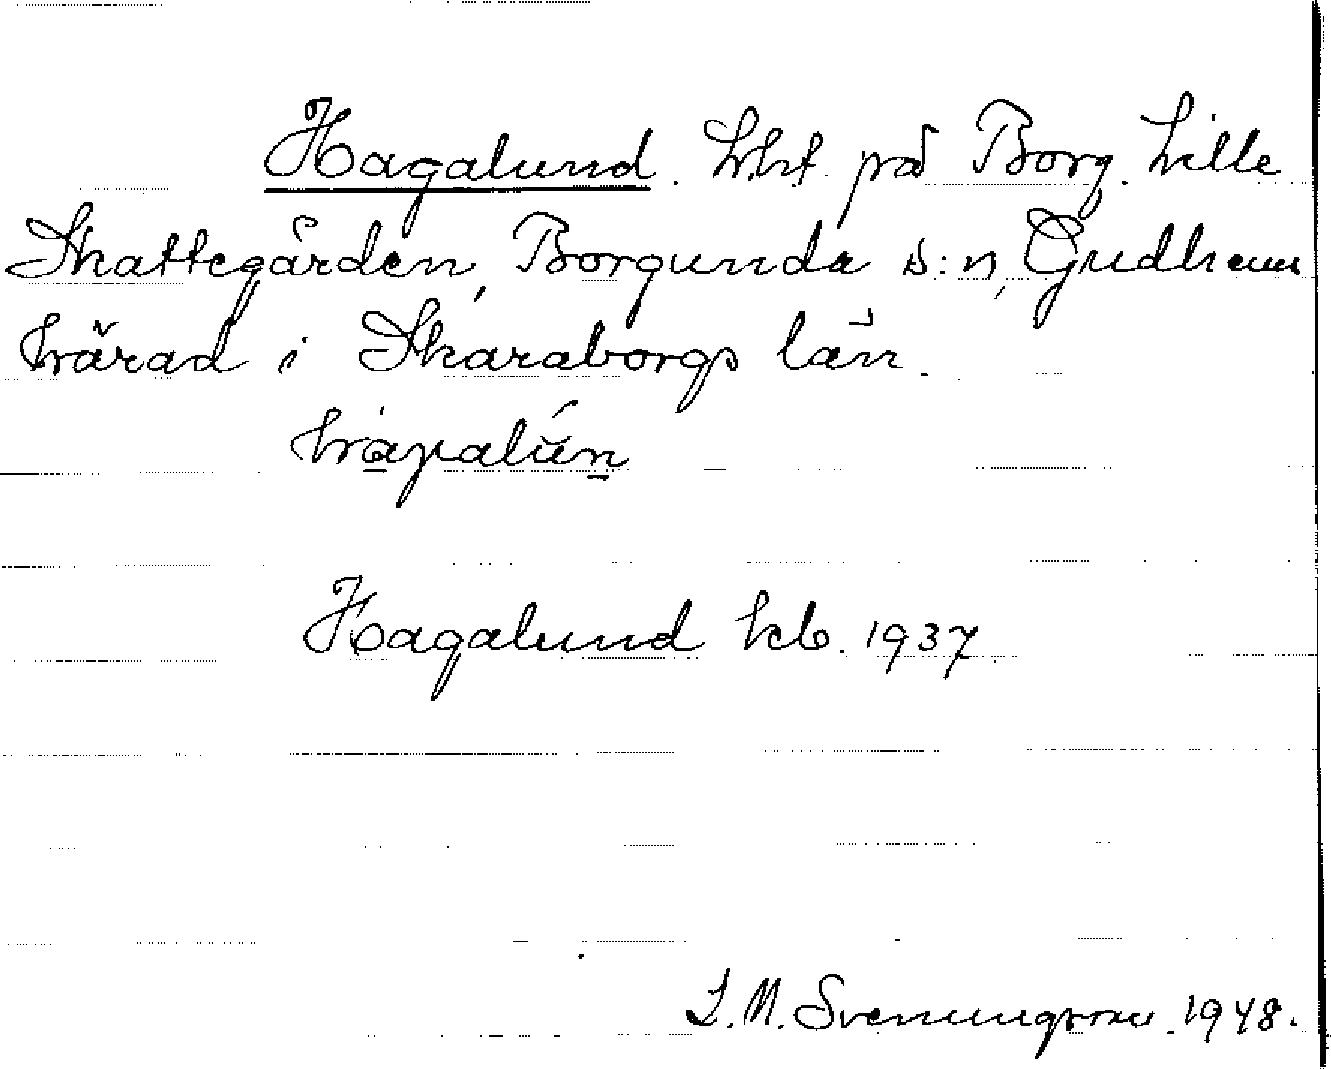 Hagalund. lht. på Borg. Lille
Skattegården, Borgunda s:n, Gudhems
härad i Skaraborgs län.
Hagalund kb. 1937.
L. M. Svenungsson. 1948.